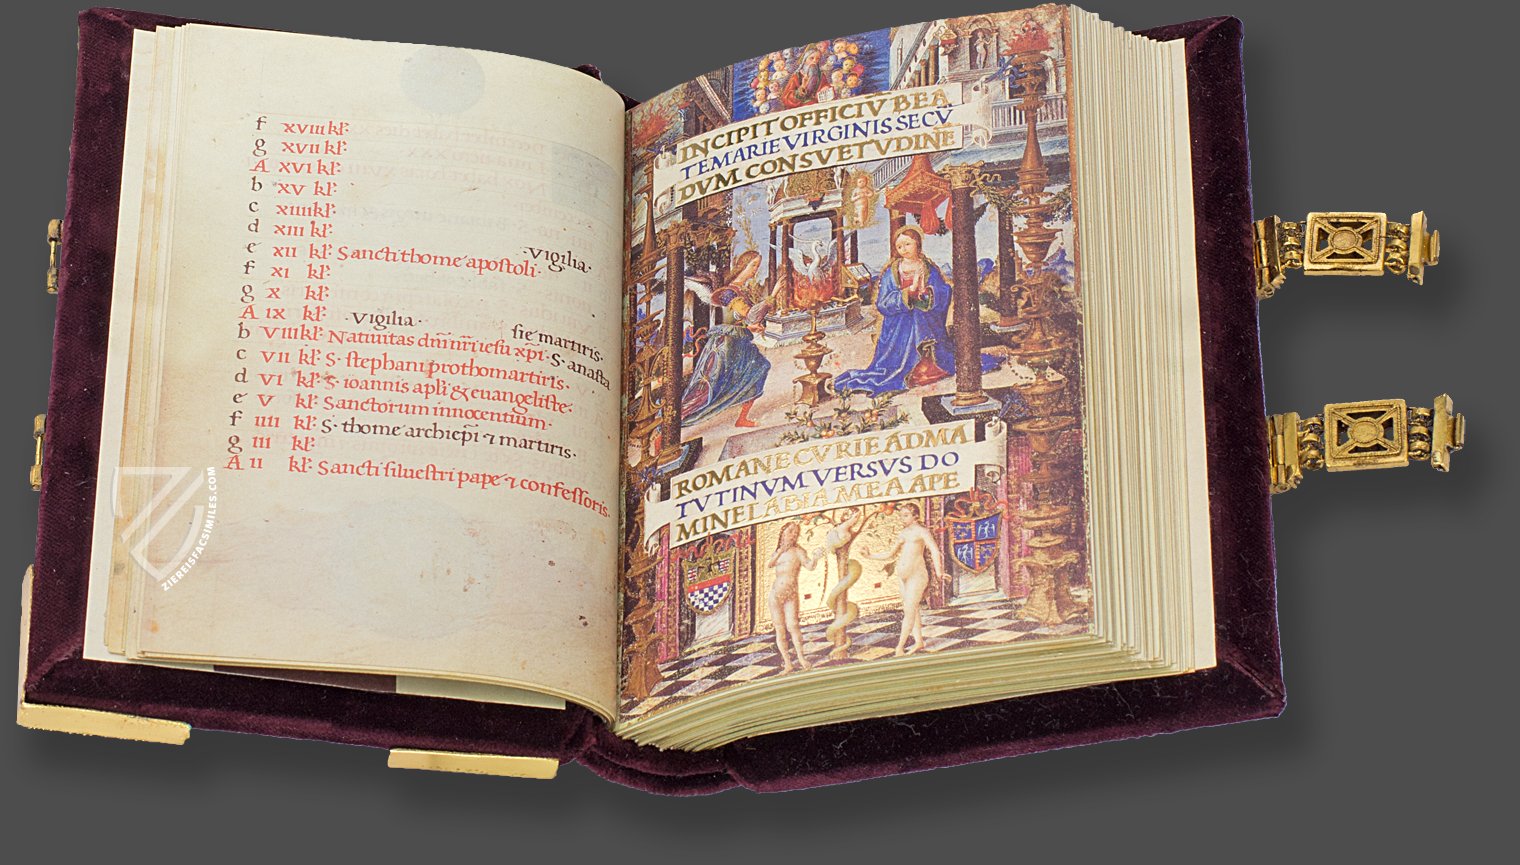 f xviii kl:
g xvii kl:
A xvi kl:
b xv kl:
c xiiii kl:
d xiii kl:
e xii kl: Sancti thome apostoli· ·Vigilia·
f xi kl:
g x kl:
A ix kl: ·Vigilia· sie martiris·
b viii kl: Natiuitas dñi nr̃i iesu xp̃i· S· anasta
c vii kl: S· stephani prothomartiris·
d vi kl: S· ioannis apl̃i & euangeliste·
e v kl: Sanctorum innocentium·
f iiii kl: S· thome archiep̃i ⁊ martiris·
g iii kl:
A ii kl: Sancti siluestri pape ⁊ confessoris·
ZIEREISFACSIMILES.COM
INCIPIT OFFICIV̄ BEA
TE MARIE VIRGINIS SECV
DVM CONSVETVDINE
ROMANE CVRIE AD MA
TVTINVM VERSVS DO
MINE LABIA MEA APE